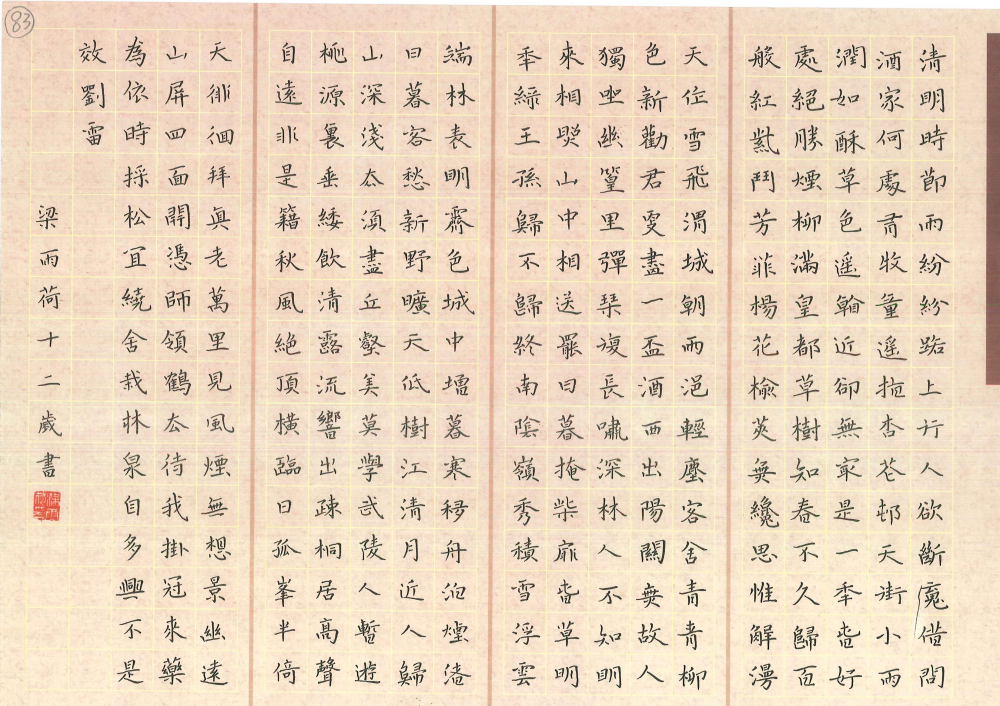 83
清明時節雨紛紛路上行人欲斷魂借問
酒家何處有牧童遙指杏花邨天街小雨
潤如酥草色遥看近卻無最是一年春好
處絕勝煙柳滿皇都草樹知春不久歸百
般紅紫鬥芳菲楊花榆莢無纔思惟解漫
天作雪飛渭城朝雨浥輕塵客舍青青柳
色新勸君更盡一盃酒西出陽關無故人
獨坐幽篁里彈琴復長嘯深林人不知明
來相照山中相送罷日暮掩柴扉春草明
年綠王孫歸不歸終南陰嶺秀積雪浮雲
端林表明霽色城中增暮寒移舟泊煙渚
日暮客愁新野曠天低樹江清月近人歸
山深淺去須盡丘壑美莫學武陵人暫遊
桃源裏垂緌飲清露流響出疎桐居高聲
自遠非是籍秋風絕頂橫臨日孤峯半倚
天徘徊拜真老萬里見風煙無想景幽遠
山屏四面開憑師領鶴去待我掛冠來藥
為依時採松宜繞舍栽林泉自多興不是
效劉雷
梁雨荷十二歲書